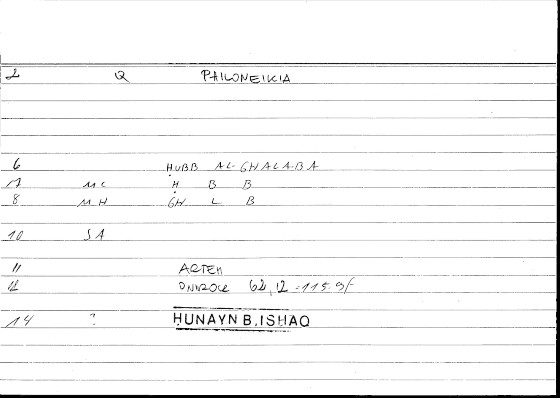 2 Q PHILONEIKIA
6 ḤUBB AL-GHALABA
7 MC Ḥ B B
8 MH GH L B
10 SA
11 ARTEM
12 ONIROCR 62,12 = 115.9f
14 ? ḤUNAYN B. ISḤAQ